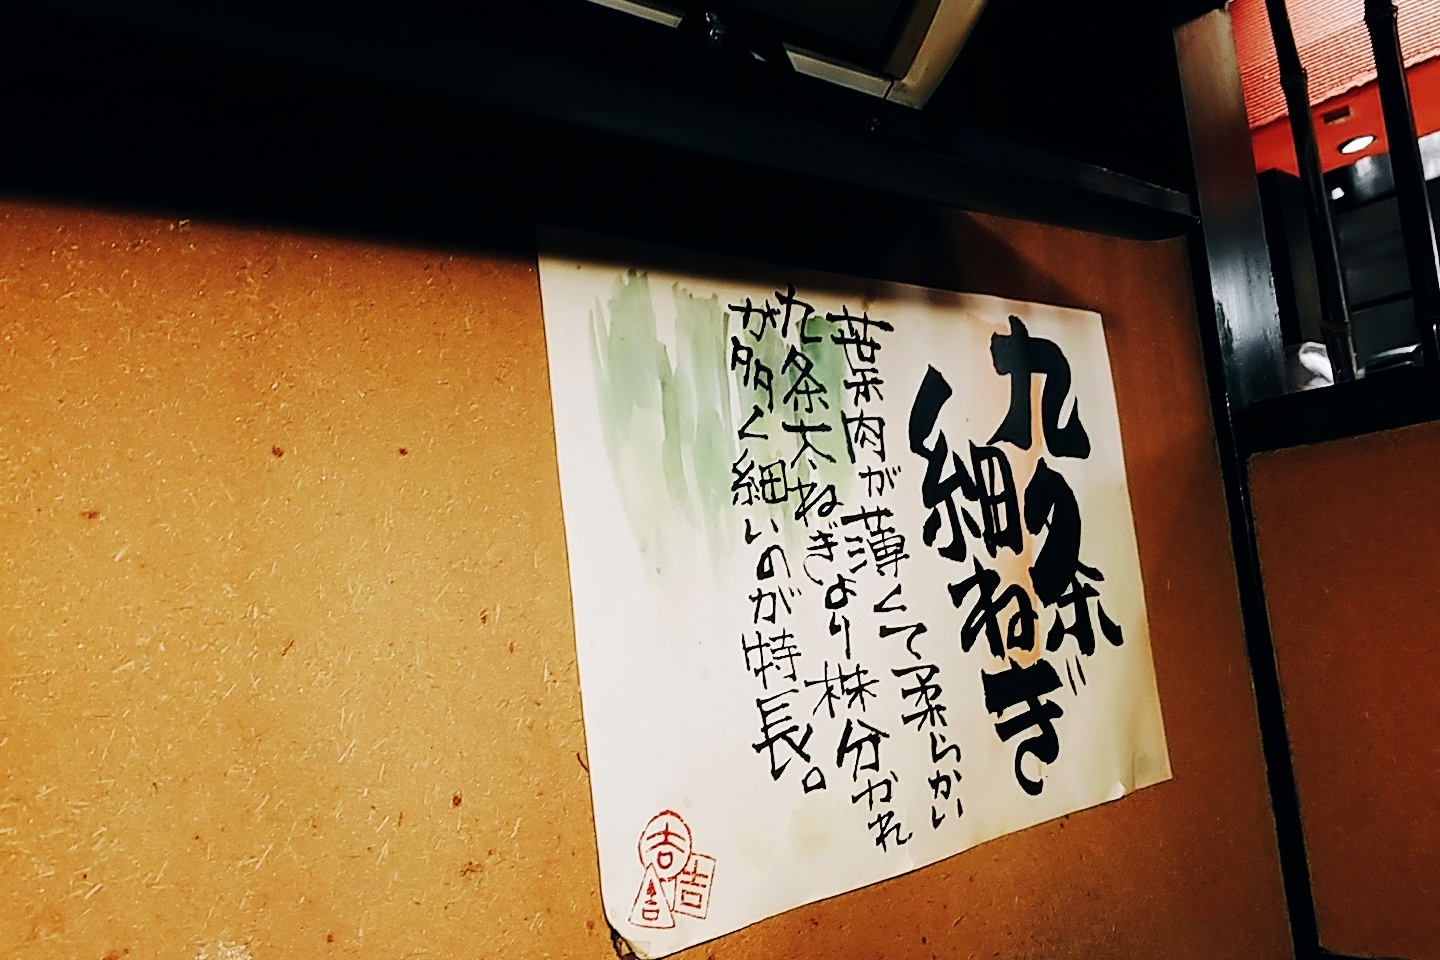 九条
細ねぎ
葉肉が薄くて柔らかい
九条太ねぎより株分かれ
が多く細いのが特長。
吉
吉
舎